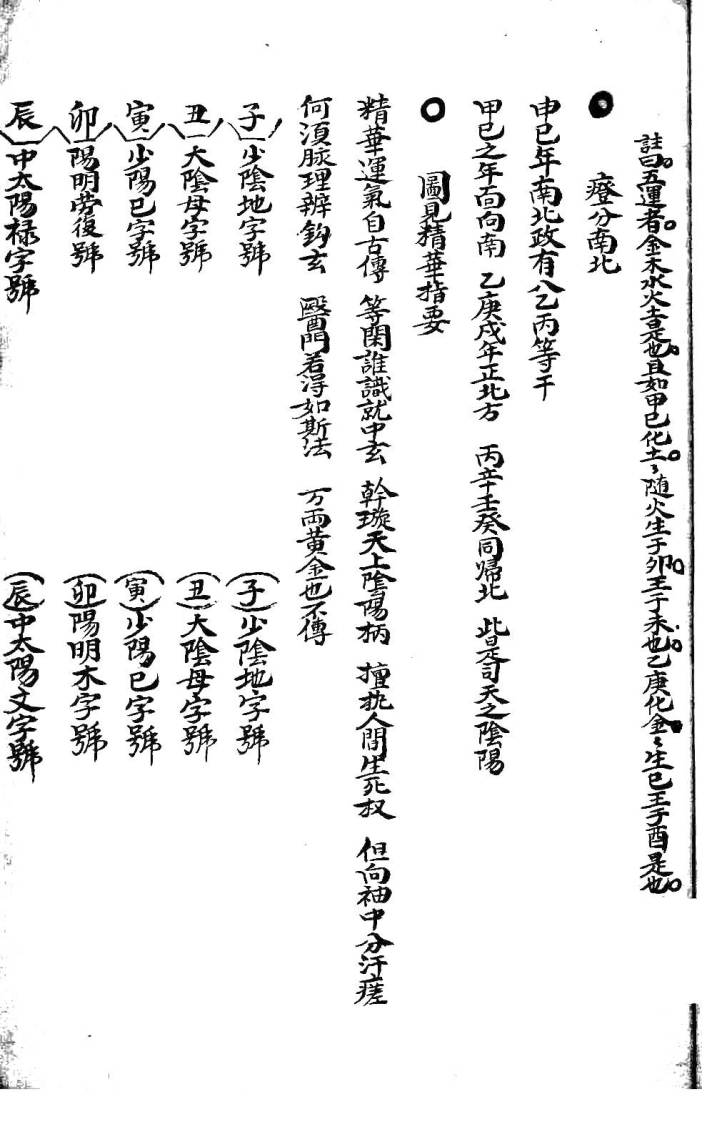 註曰五運者金木水火土是也且如甲巳化土々随火生于卯王于未也乙庚化金々生巳王于酉是也
癋分南北
申巳年南北政有八乙丙等干
甲巳之年面向南 乙庚戌年正北方 丙辛壬癸同帰北 此是司天之陰陽
圖見精華指要
精華運氣自古傳 等閑誰識就中玄 幹璇天上陰陽柄 擅执人間生死权 但向袖中分汗瘥
何湏脉理辨鈎玄 醫門若淂如斯法 万両黄金也不傳
子 少陰地字號 子 少陰地字號
丑 大陰母字號 丑 大陰母字號
寅 少陽巳字號 寅 少陽巳字號
卯 陽明劳復號 卯 陽明木字號
辰 中太陽禄字號 辰 中太陽文字號